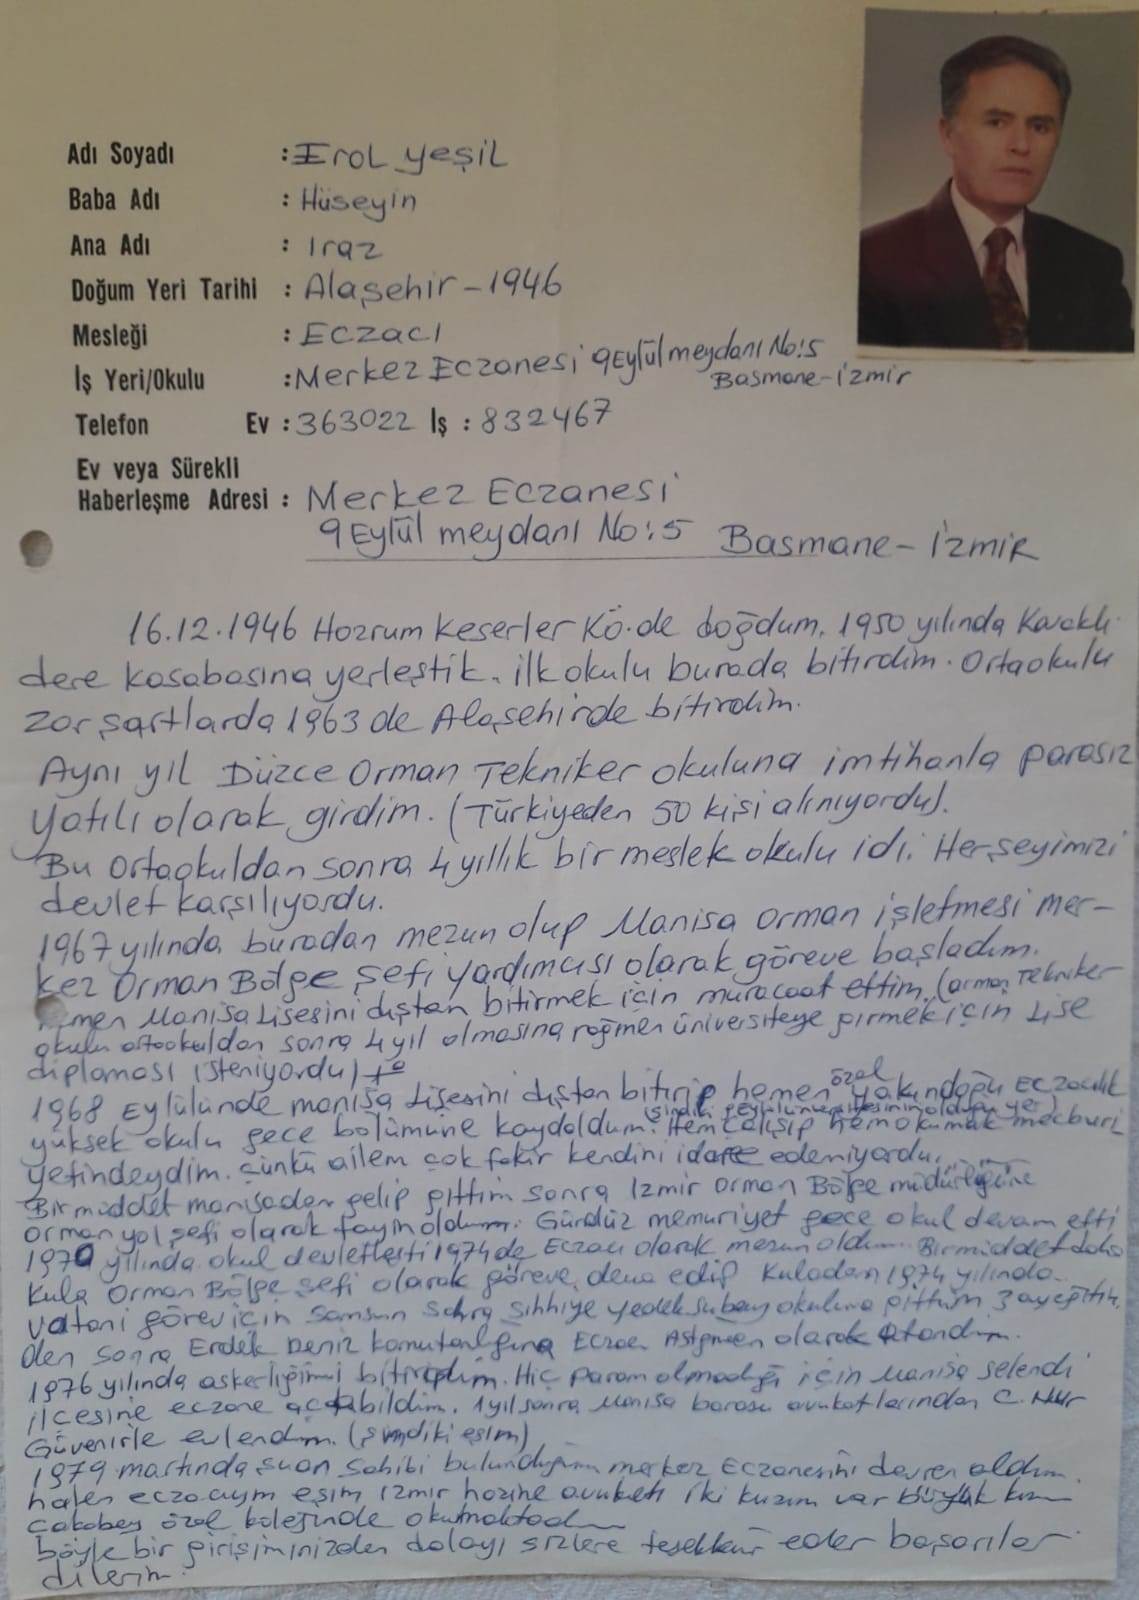 Adı Soyadı : Erol Yeşil
Baba Adı : Hüseyin
Ana Adı : Iraz
Doğum Yeri Tarihi : Alaşehir - 1946
Mesleği : Eczacı
İş Yeri/Okulu : Merkez Eczanesi 9 Eylül meydanı No:5
Basmane-İzmir
Telefon Ev : 363022 İş : 832467
Ev veya Sürekli
Haberleşme Adresi : Merkez Eczanesi
9 Eylül meydanı No:5 Basmane - İzmir
16.12.1946 Hozrum Keserler Kö.de doğdum. 1950 yılında Kavaklı-
dere kasabasına yerleştik. İlk okulu burada bitirdim. Ortaokulu
zor şartlarda 1963 de Alaşehirde bitirdim.
Aynı yıl Düzce Orman Tekniker okuluna imtihanla parasız
yatılı olarak girdim. (Türkiyeden 50 kişi alınıyordu).
Bu ortaokuldan sonra 4 yıllık bir meslek okulu idi. Herşeyimizi
devlet karşılıyordu.
1967 yılında buradan mezun olup Manisa Orman işletmesi mer-
kez Orman Bölge Şefi yardımcısı olarak göreve başladım.
Hemen Manisa Lisesini dıştan bitirmek için müracaat ettim. (orman Tekniker
okulu ortaokuldan sonra 4 yıl olmasına rağmen üniversiteye girmek için Lise
diploması isteniyordu)
1968 Eylülünde manisa Lisesini dıştan bitirip hemen özel yakındoğu Eczacılık
yüksek okulu gece bölümüne kaydoldum. (Şimdiki olduğu yer) Hem çalışıp hem okumak mecburi
yetindeydim. Çünkü ailem çok fakir kendini idare edemiyordu.
Bir müddet manisadan gelip gittim sonra İzmir Orman Bölge müdürlüğüne
orman yol şefi olarak tayin oldum. Gündüz memuriyet gece okul devam etti
1970 yılında okul devletleşti 1974 de Eczacı olarak mezun oldum. Bir müddet daha
Kula Orman Bölge Şefi olarak göreve devam edip Kuladan 1974 yılında
Vatani görev için Samsun Sahra Sıhhiye yedek subay okuluna gittim 3 ay eğitim-
den sonra Erdek Deniz komutanlığına Eczacı Asteğmen olarak atandım.
1976 yılında askerliğimi bitirdim. Hiç param olmadığı için Manisa Selendi
ilçesine eczane açabildim. 1 yıl sonra Manisa barosu avukatlarından C. Nur
Güvenirle evlendim. (şimdiki eşim)
1979 martında şuan sahibi bulunduğum merkez Eczanesini devren aldım.
halen eczacıyım eşim İzmir hazine avukatı iki kızım var büyük kızım
Çakabey özel kolejinde okumaktadır
böyle bir girişiminizden dolayı sizlere teşekkür eder başarılar
dilerim.